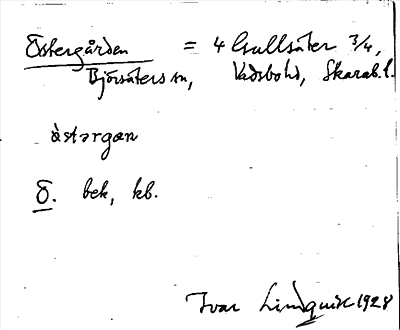 Östergården = 4 Gullsäter 3/4,
Björsäters sn, Vadsbo hd, Skarab. l.
àstərgan
Ö. bek, kb.
Ivar Lindquist 1928